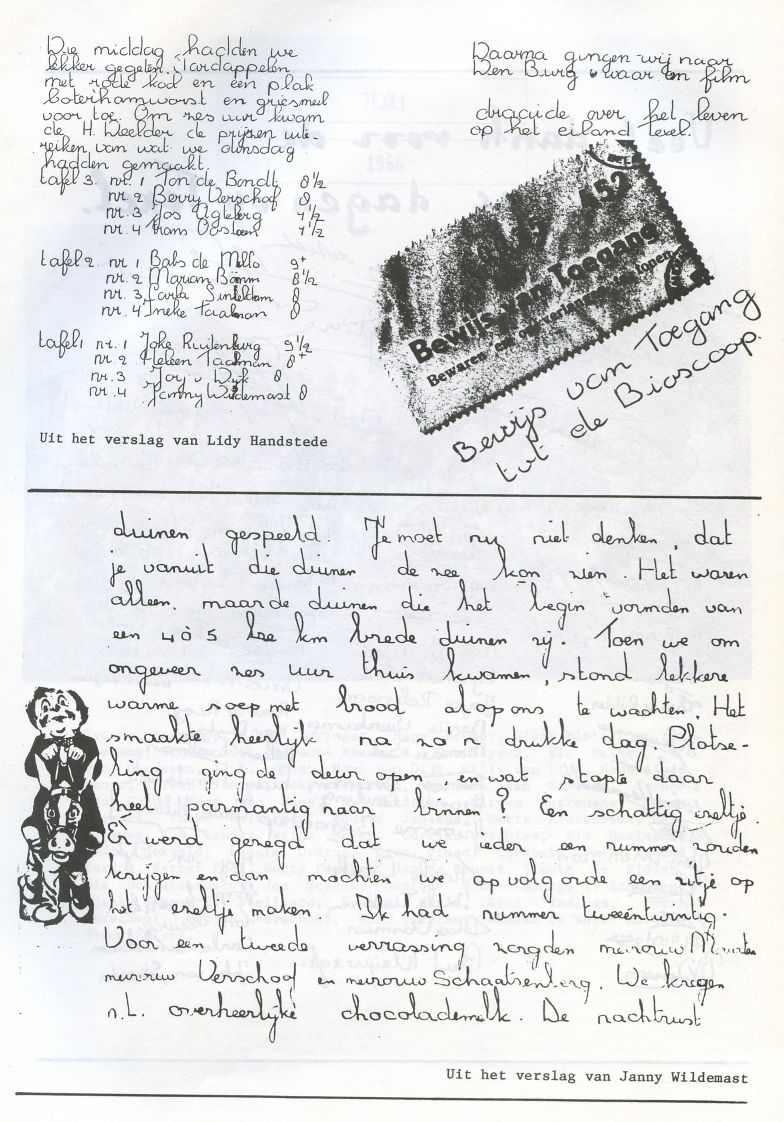 Die middag hadden we
lekker gegeten. Aardappelen
met rode kool en een plak
boterhamworst en griesmeel
voor toe. Om zes uur kwam
de H. Weelder de prijzen uit-
reiken van wat we dinsdag
hadden gemaakt.
tafel 3. nr. 1 Ton de Bondt 8½
nr. 2 Berry Verschoof 8
nr. 3 Jos 7½
nr. 4 Frans 7½
tafel 2. nr 1 Babs de Mello 9+
nr. 2 Mariam 8½
nr. 3 Carla 8
nr. 4 Ineke Taalman 8
tafel 1 nr. 1 Joke Ruitenburg 9½
nr. 2 Heleen Taalman 8+
nr. 3 Jory v Wijk 8
nr. 4 Janny Wildemast 8
Uit het verslag van Lidy Handstede
Daarna gingen wij naar
Den Burg waar en film
draaide over het leven
op het eiland texel.
452
Bewijs van Toegang
Bewaren en op
Bewijs van Toegang
tot de Bioscoop.
duinen gespeeld. Je moet nu niet denken, dat
je vanuit die duinen de zee kon zien. Het waren
alleen maar de duinen die het begin vormden van
een 4 à 5 km brede duinen rij. Toen we om
ongeveer zes uur thuis kwamen, stond lekkere
warme soep met brood al op ons te wachten. Het
smaakte heerlijk na zo'n drukke dag. Plotse-
ling ging de deur open, en wat stapte daar
heel parmantig naar binnen? Een schattig ezeltje.
Er werd gezegd dat we ieder een nummer zouden
krijgen en dan mochten we op volgorde een ritje op
het ezeltje maken. Ik had nummer tweeëntwintig.
Voor een tweede verrassing zorgden mevrouw
mevrouw Verschoof en mevrouw Schaatsenberg. We kregen
n.l. overheerlijke chocolademelk. De nachtrust
Uit het verslag van Janny Wildemast